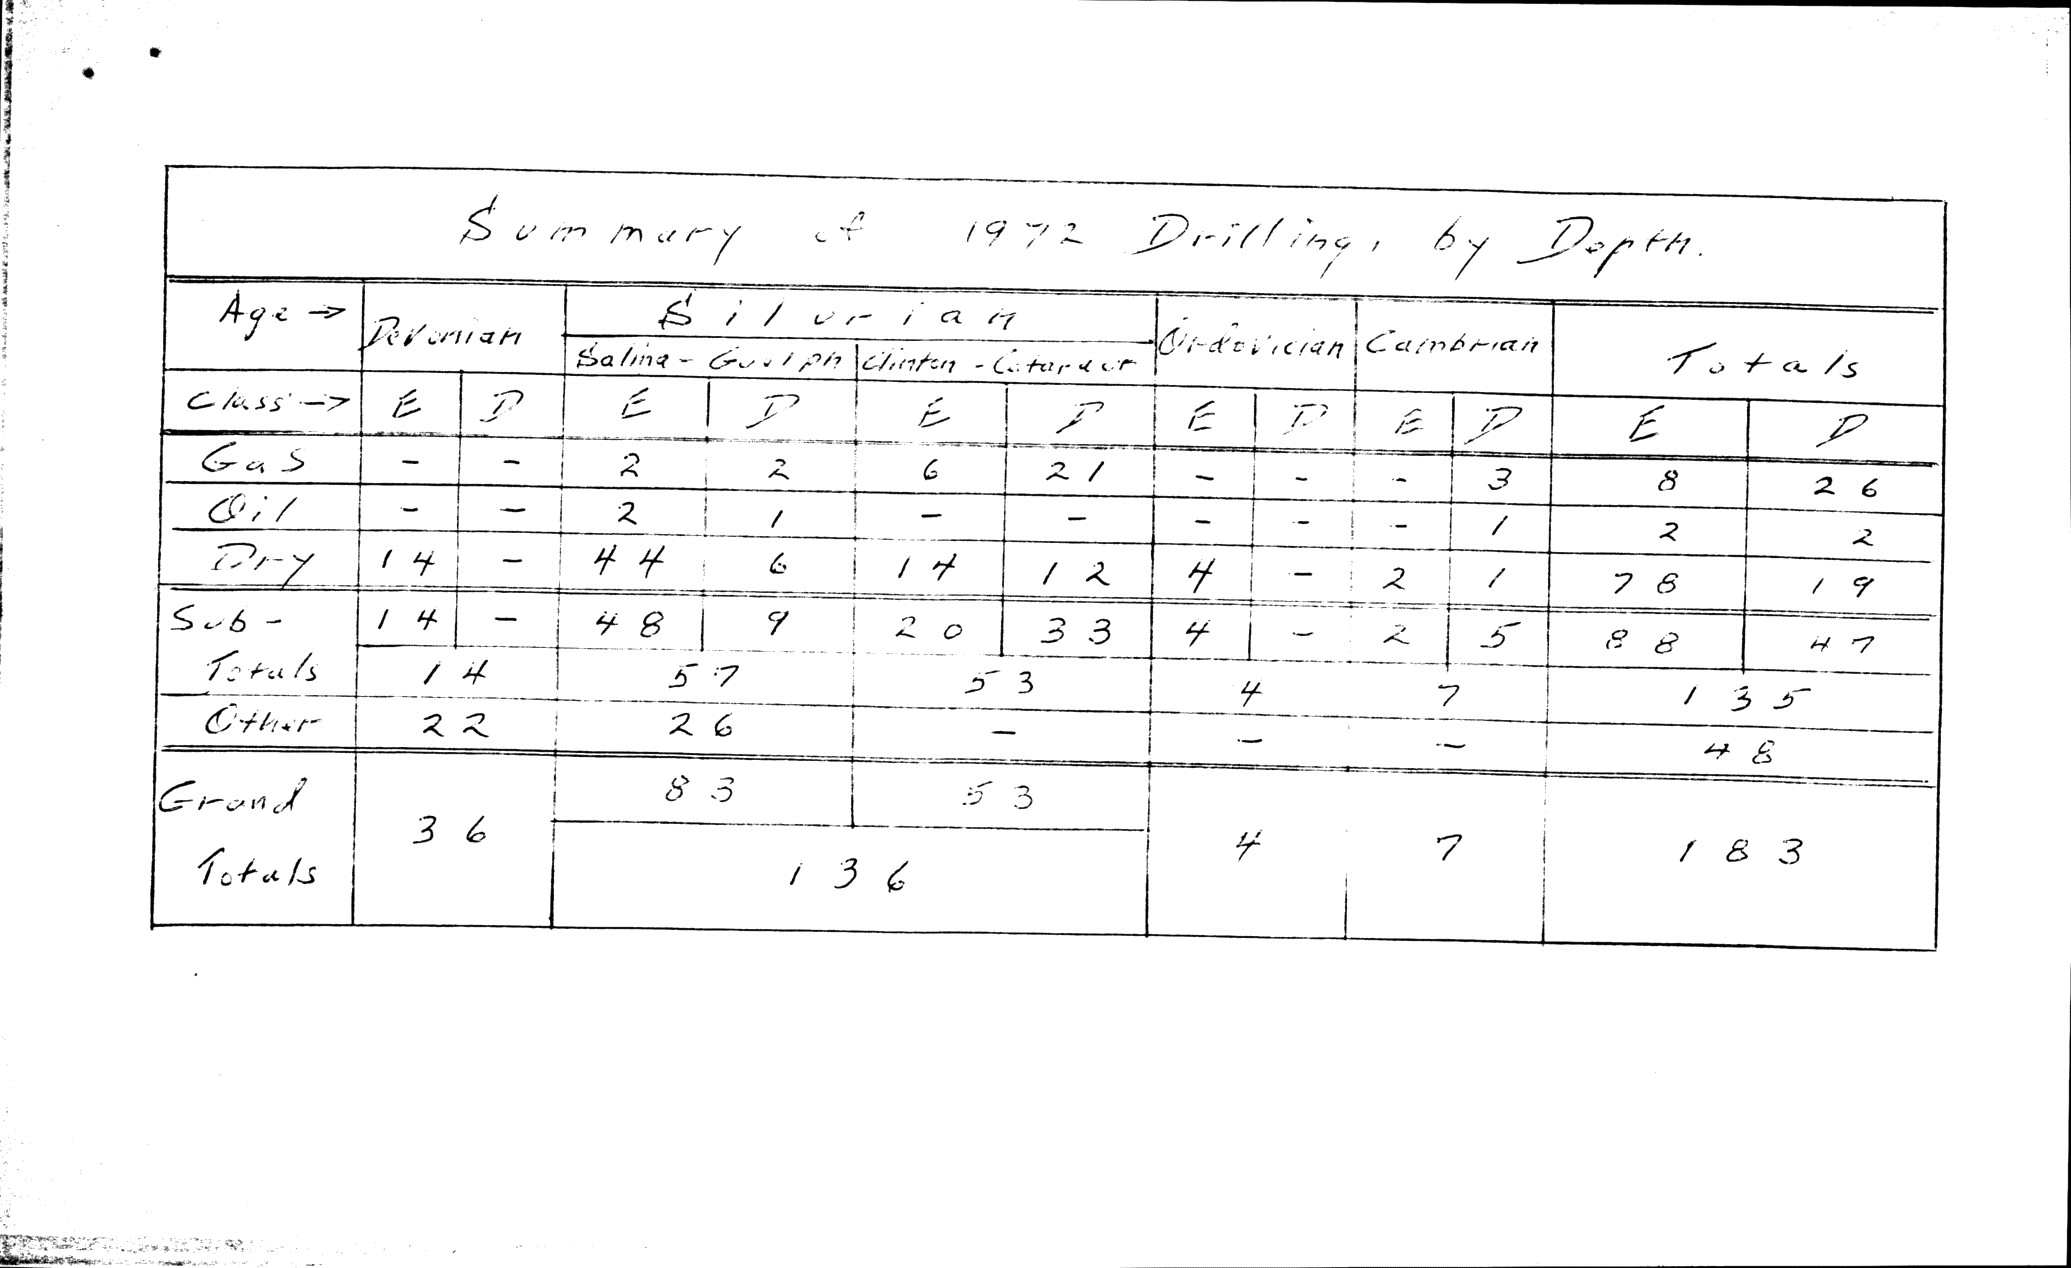 Summary of 1972 Drilling, by Depth.
Age → Devonian Silurian Ordovician Cambrian Totals
Salina - Guelph Clinton - Cataract
Class → E D E D E D E D E D E D
Gas - - 2 2 6 21 - - - 3 8 26
Oil - - 2 1 - - - - - 1 2 2
Dry 14 - 44 6 14 12 4 - 2 1 78 19
Sub - 14 - 48 9 20 33 4 - 2 5 88 47
Totals 14 57 53 4 7 135
Other 22 26 - - - 48
Grand 83 53
Totals 36 136 4 7 183